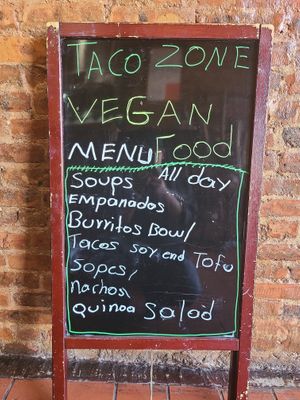 TACO ZONE
VEGAN
MENU Food
SOUPS All day
EMPANADOS
Burritos Bowl
Tacos soy end Tofu
Sopes/
Nachos/
Quinoa Salad